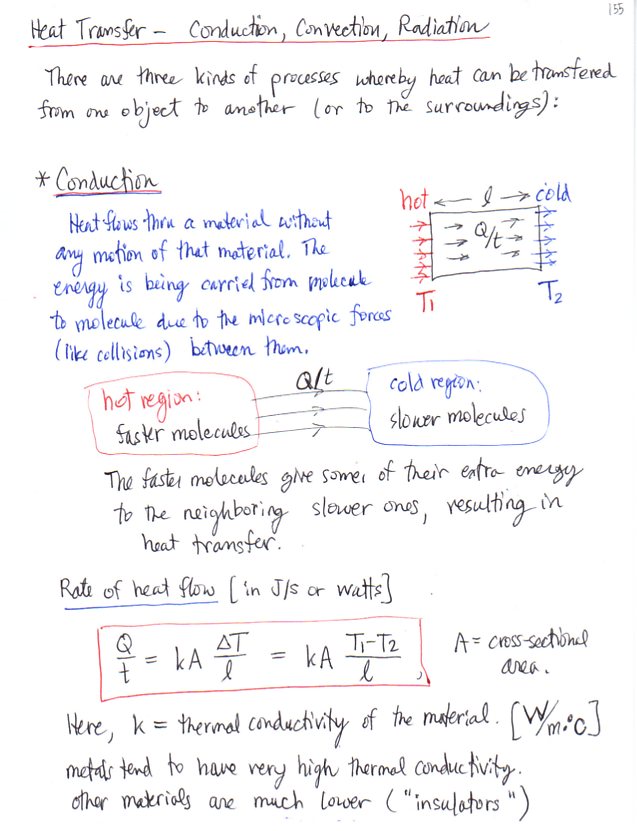 155
Heat Transfer – Conduction, Convection, Radiation
There are three kinds of processes whereby heat can be transfered
from one object to another (or to the surroundings):
* Conduction
Heat flows thru a material without
any motion of that material. The
energy is being carried from molecule
to molecule due to the microscopic forces
(like collisions) between them.
hot ← l → cold
Q/t
T1 T2
Q/t
hot region:
faster molecules
cold region:
slower molecules
The faster molecules give some of their extra energy
to the neighboring slower ones, resulting in
heat transfer.
Rate of heat flow [in J/s or watts]
Q/t = kA ΔT/l = kA (T1-T2)/l,
A = cross-sectional
area.
Here, k = thermal conductivity of the material. [W/m·°C]
metals tend to have very high thermal conductivity.
other materials are much lower ("insulators")